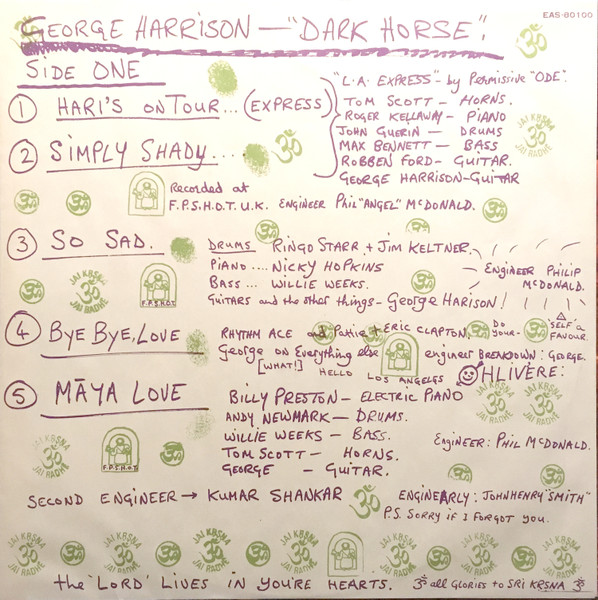 EAS-80100
GEORGE HARRISON — "DARK HORSE".
SIDE ONE
① HARI'S ON TOUR... (EXPRESS)
"L.A. EXPRESS" - by Permissive "ODE".
TOM SCOTT — HORNS.
ROGER KELLAWAY — PIANO
JOHN GUERIN — DRUMS
MAX BENNETT — BASS
ROBBEN FORD — GUITAR.
GEORGE HARRISON - GUITAR
② SIMPLY SHADY....
Recorded at
F.P.S.H.O.T. U.K. ENGINEER PHIL "ANGEL" McDONALD.
③ SO SAD.
DRUMS RINGO STARR + JIM KELTNER.
PIANO .... NICKY HOPKINS
BASS ... WILLIE WEEKS.
GUITARS and the other things - GEORGE HARISON!
ENGINEER PHILIP
McDONALD.
④ BYE BYE, LOVE
RHYTHM ACE and Pattie + ERIC CLAPTON.
DO YOUR- 'SELF' A
FAVOUR.
George on Everything else engineer BREAKDOWN: GEORGE.
[WHAT!] HELLO LOS ANGELES
OHLIVERE:
⑤ MĀYA LOVE
BILLY PRESTON — ELECTRIC PIANO
ANDY NEWMARK — DRUMS.
WILLIE WEEKS — BASS.
TOM SCOTT — HORNS.
GEORGE — GUITAR.
ENGINEER: PHIL McDONALD.
SECOND ENGINEER → KUMAR SHANKAR
ENGINEARLY: JOHN HENRY "SMITH"
P.S. SORRY IF I FORGOT YOU.
the 'LORD' LIVES IN YOU'RE HEARTS.
ॐ all GLORIES to SRI KRSNA ॐ
JAI KRSNA
ॐ
JAI RADHE
F.P.S.H.O.T.